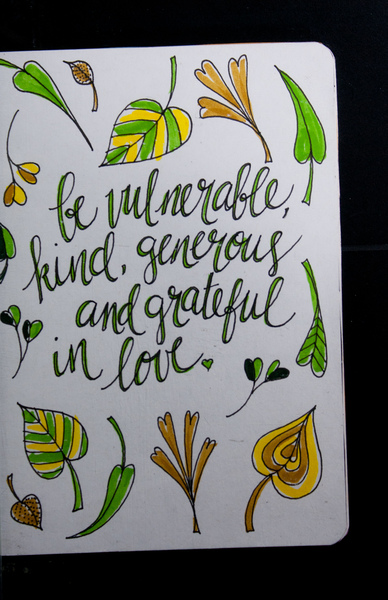 be vulnerable,
kind, generous
and grateful
in love.